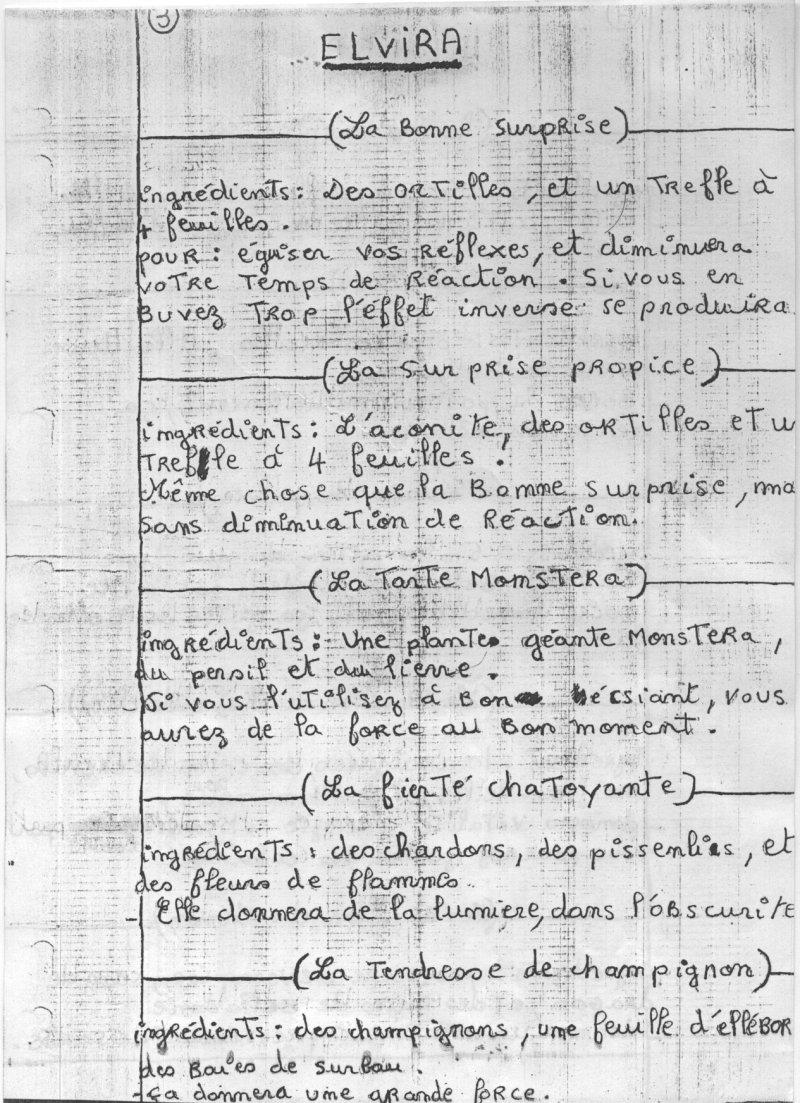 3
ELViRA
(La Bonne SurpRise)
ingrédients: Des ORTilles, et un TReffe à
4 feuilles.
pour: éguiser vos Réflexes, et diminuera
voTRe Temps de Réaction. Si vous en
Buvez TRop l'éffet inverse se produira
(La SurpRise pRopice)
ingRédients: L'aconite, des ORTilles et u
TRefle à 4 feuilles.
Même chose que la Bonne surprise, ma
sans diminuaTion de RéacTion.
(La TarTe MonsTeRa)
ingRédients: Une plante géante MonsTeRa,
du persil et du lierre.
Si vous l'uTilisez à Bon écsiant, vous
aurez de la foRce au Bon moment.
(La fierTé chaToyante)
ingRédients: des chardons, des pissenlies, et
des fleurs de flammes.
- Elle donnera de la lumiere, dans l'obscurite
(La Tendresse de champignon)
ingrédients: des champignons, une feuille d'elléBOR
des Baies de surbau.
- ça donnera une gRande foRce.